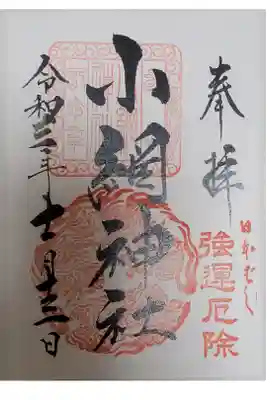 奉拝
日本ばし
強運厄除
小網神社
令和三年十一月 日